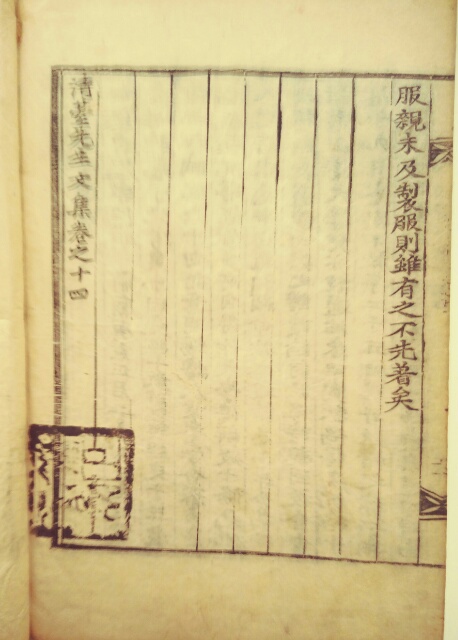 服親未及製服則雖有之不先著矣
清臺先生文集卷之十四